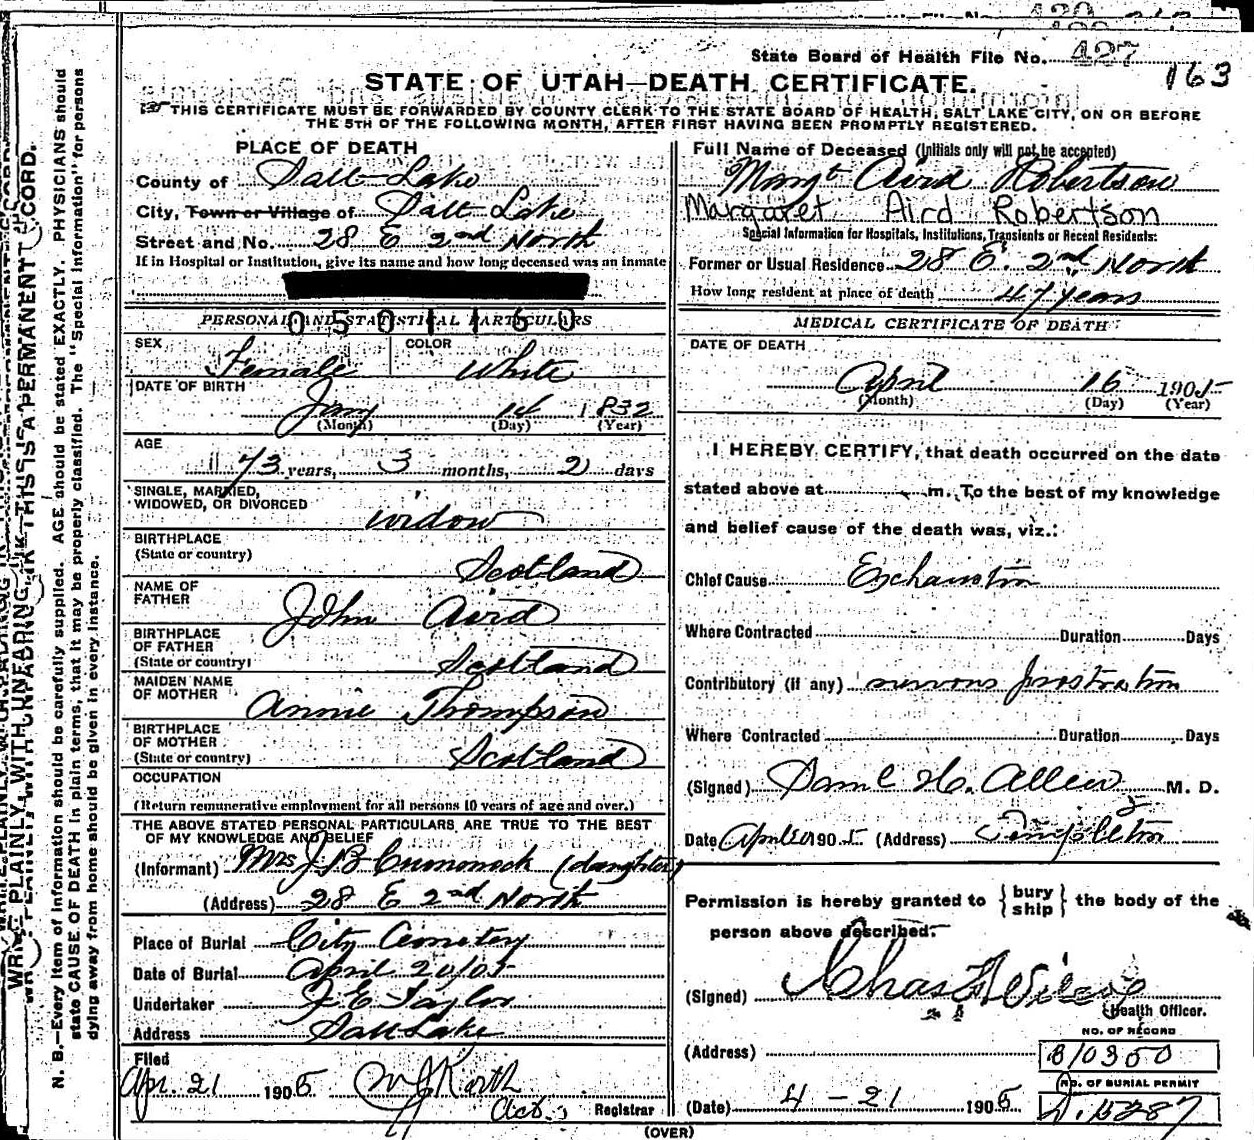 State Board of Health File No. 427
163
STATE OF UTAH—DEATH CERTIFICATE.
THIS CERTIFICATE MUST BE FORWARDED BY COUNTY CLERK TO THE STATE BOARD OF HEALTH, SALT LAKE CITY, ON OR BEFORE
THE 5TH OF THE FOLLOWING MONTH, AFTER FIRST HAVING BEEN PROMPTLY REGISTERED.
PLACE OF DEATH
County of Salt Lake
City, Town or Village of Salt Lake
Street and No. 28 E 2nd North
If in Hospital or Institution, give its name and how long deceased was an inmate
PERSONAL AND STATISTICAL PARTICULARS
0501160
SEX Female COLOR White
DATE OF BIRTH
Jany 14 1832
(Month) (Day) (Year)
AGE
73 years, 3 months, 2 days
SINGLE, MARRIED,
WIDOWED, OR DIVORCED widow
BIRTHPLACE
(State or country) Scotland
NAME OF
FATHER John Aird
BIRTHPLACE
OF FATHER
(State or country) Scotland
MAIDEN NAME
OF MOTHER Annie Thompson
BIRTHPLACE
OF MOTHER
(State or country) Scotland
OCCUPATION
(Return remunerative employment for all persons 10 years of age and over.)
THE ABOVE STATED PERSONAL PARTICULARS ARE TRUE TO THE BEST
OF MY KNOWLEDGE AND BELIEF
(Informant) Mrs J B Cummock (daughter)
(Address) 28 E 2nd North
Place of Burial City Cemetery
Date of Burial April 20/05
Undertaker J E Taylor
Address Salt Lake
Filed
Apr. 21 1905
Registrar
(OVER)
Full Name of Deceased (Initials only will not be accepted)
Margt Aird Robertson
Margaret Aird Robertson
Special Information for Hospitals, Institutions, Transients or Recent Residents:
Former or Usual Residence 28 E. 2nd North
How long resident at place of death 47 years
MEDICAL CERTIFICATE OF DEATH
DATE OF DEATH
April 16 1905
(Month) (Day) (Year)
I HEREBY CERTIFY, that death occurred on the date
stated above at m. To the best of my knowledge
and belief cause of the death was, viz.:
Chief Cause Exhaustion
Where Contracted Duration Days
Contributory (if any) nervous prostration
Where Contracted Duration Days
(Signed) Saml H. Allen M. D.
Date April 1905 (Address) Templeton
Permission is hereby granted to { bury ship } the body of the
person above described.
(Signed) Chas
Health Officer.
NO. OF RECORD
(Address) B10350
NO. OF BURIAL PERMIT
(Date) 4-21 1905 5287
N. B.—Every item of information should be carefully supplied. AGE should be stated EXACTLY. PHYSICIANS should
state CAUSE OF DEATH in plain terms, that it may be properly classified. The "Special Information" for persons
dying away from home should be given in every instance.